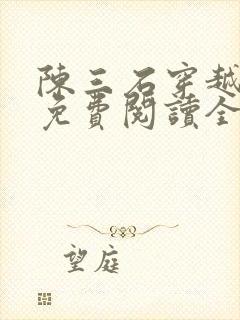 陳三石穿越
免費閱讀全
望庭